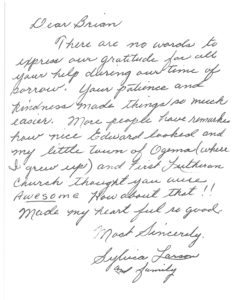 Dear Brian
There are no words to
express our gratitude for all
your help during our time of
sorrow. Your patience and
kindness made things so much
easier. More people have remarked
how nice Edward looked and
my little town of Ogema (where
I grew up) and First Lutheran
Church thought you were
Awesome How about that!!
Made my heart feel so good.
Most Sincerely,
Sylvia Larson
and family